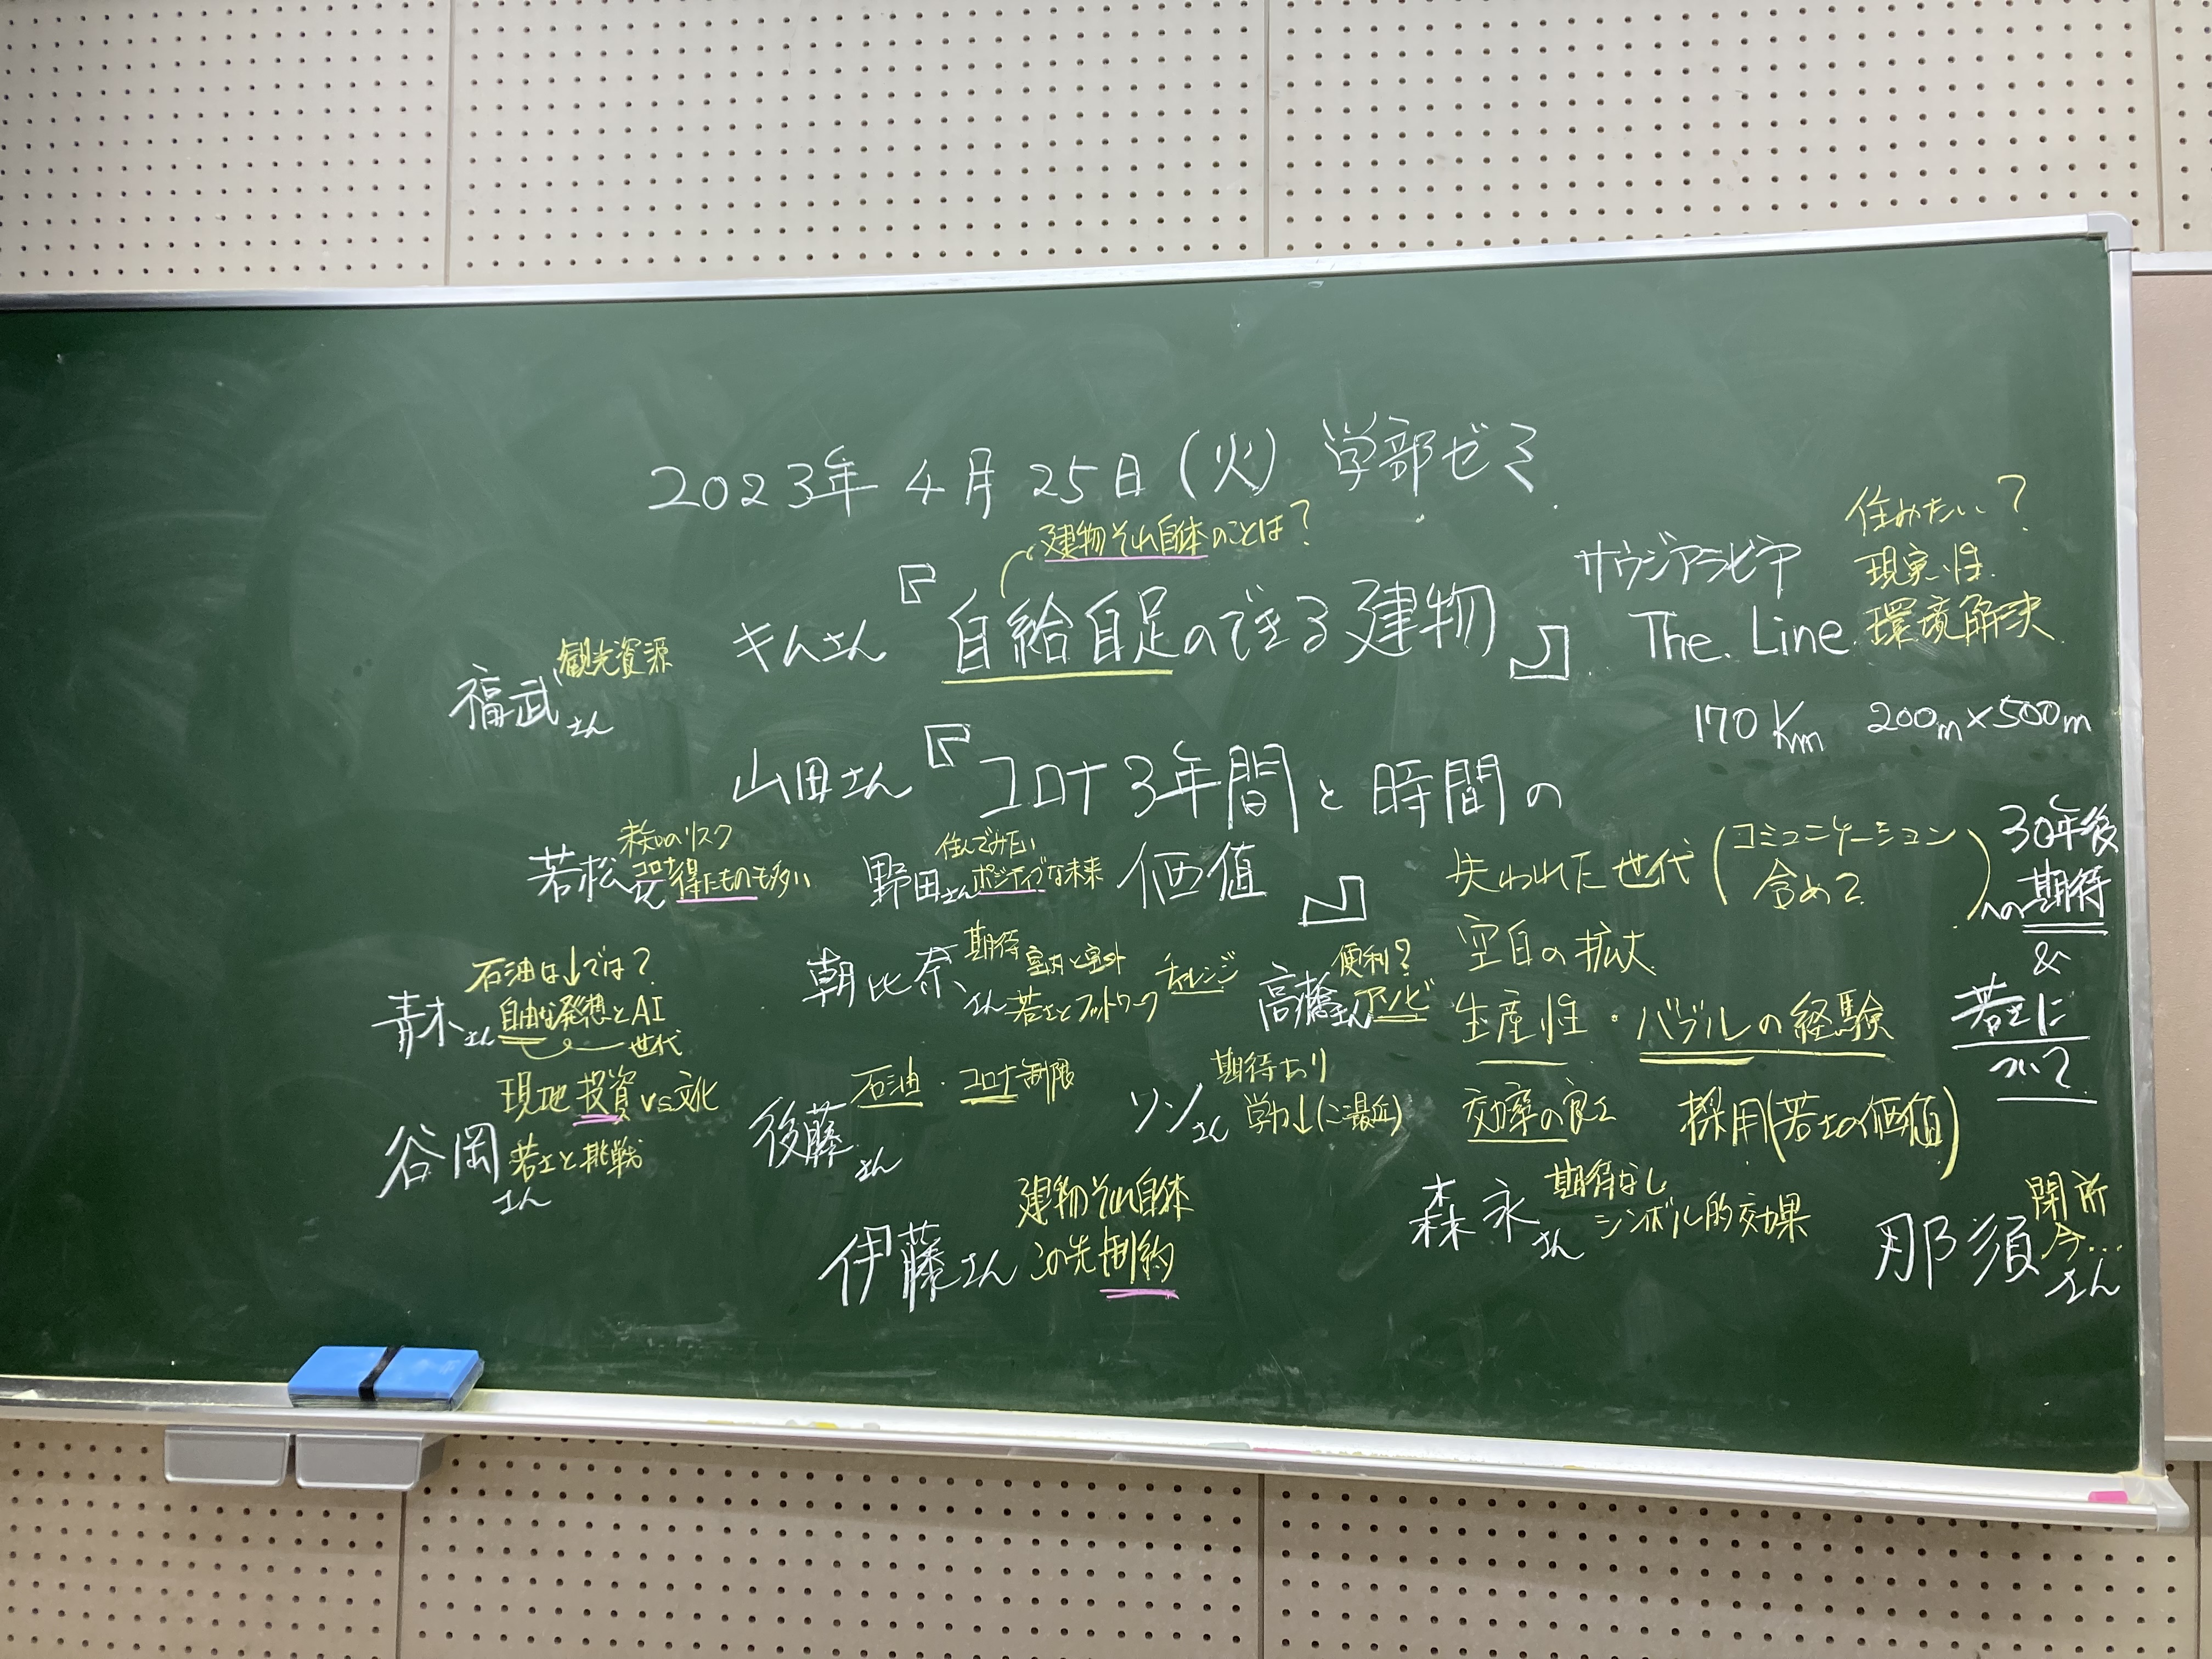 2023年 4月 25日 (火) 学部ゼミ
建物それ自体のことは?
キムさん『自給自足のできる建物』
サウジアラビア
The. Line
住みたい?
現実性
環境解決
170 Km 200m×500m
観光資源
福武さん
山田さん『コロナ3年間と時間の
価値』
未知のリスク
若松さん コロナ 得たものも多い
住んでみたい
野田さん ポジティブな未来
失われた世代(コミュニケーション
含めて)への
30年後
期待
&
若さに
ついて
空白の拡大
生産性・バブルの経験
効率の良さ 採用(若さの価値)
石油は↓では?
青木さん 自由な発想とAI
世代
期待 室内と室外
朝比奈さん 若さとフットワーク チャレンジ
便利?
高橋さん アソビ
現地投資vs文化
谷岡さん 若さと挑戦
石油・コロナ制限
後藤さん
期待あり
ソンさん 学力↓(ご最近)
建物それ自体
伊藤さん この先 制約
期待なし
森永さん シンボル的効果
閉所
那須さん 今…